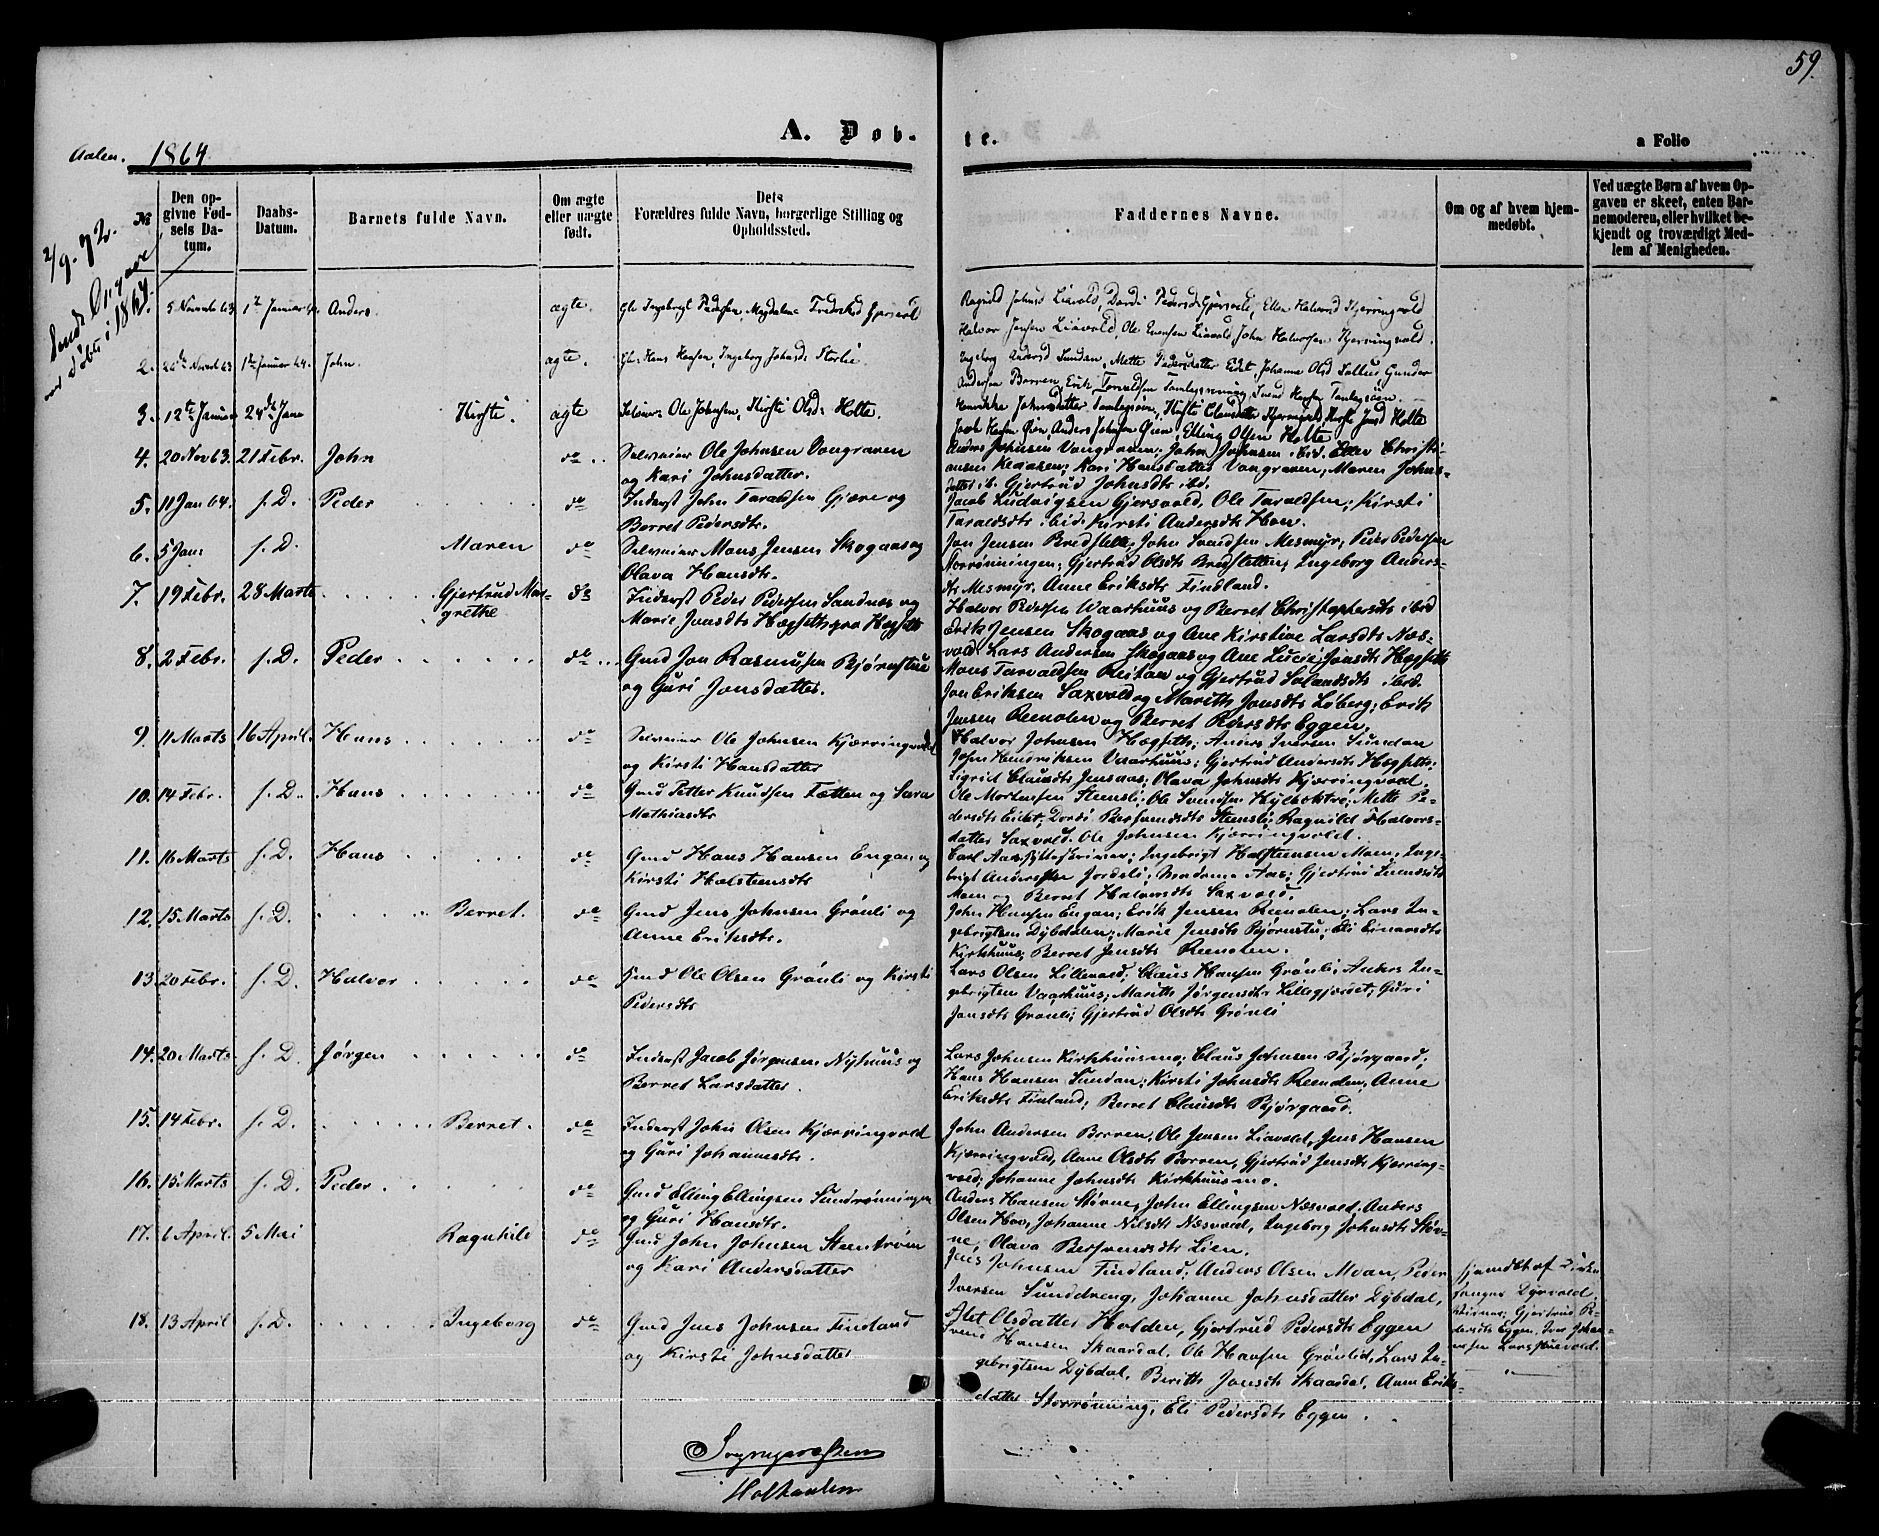 59.
A. Døb-
te.
a Folio
Aalen. 1864.
2/9. 72.
Sendt Opgave
over Døbte i 1864.
№
Den opgivne Fødsels Datum.
Daabs-Datum.
Barnets fulde Navn.
Om ægte eller uægte født.
Dets Forældres fulde Navn, borgerlige Stilling og Opholdssted.
Faddernes Navne.
Om og af hvem hjemmedøbt.
Ved uægte Børn af hvem Opgaven er skeet, enten Barnemoderen, eller hvilket bekjendt og troværdigt Medlem af Menigheden.
5 Novemb 63. 1ste Januar 64. Anders. ægte. Ingebrigt Pedersen, Magdalena Fredriksd Gjersvold
Ragnild Johnsd Liavold, Dordi Pedersd Gjersvold, Ellen Halvorsd Kjerringvold
Halvor Jensen Liavold, Ole Evensen Liavold, John Halvorsen Kjerringvold.
2. 63 1ste Januar 64. John. ægte. Hans Hansen, Ingeborg Johnsd: Storlie
Ingeborg Andersd Sundan, Mette Pedersdatter Eidet, Johanne Olsd Gunder
Andersen Borren, Erik Taraldsen Svend Hansen
3. 12te Januar 24de Janu Kirsti. ægte Selveier Ole Johnsen, Kirsti Olsd: Holte.
Johnsdatter Kirsti Clausdatter Kirsti Jensd Holte
Hansen Øien, Anders Johnsen Øien, Elling Olsen Holte
4. 20 Nov 63. 21 Febr. John do Selveier Ole Johnsen Vongraven
og Kari Johnsdatter.
Anders Johnsen Vongraven; John Johnsen ibid. Eller Christi-
ansen Klaasen; Kari Hansdatter Vongraven, Maren Johns-
datter ib. Gjertrud Johnsdtr ibd.
5. 11 Jan 64. s. D. Peder do Inderst John Taraldsen Gjære og
Berret Pedersdtr.
Jacob Ludvigsen Gjersvold, Ole Taraldsen; Kirsti
Taraldsdtr ibid. Kirsti Andersdtr Hon.
6. 5 Jan: s. D. Maren do Selveier Mons Jensen Skogaas og
Olava Hansdtr.
Jon Jensen Bredslett; John Svendsen Mesmyr; Peder Pedersen
Storrønningen; Gjertrud Olsdtr Bredsletten; Ingeborg Anders-
dtr Mesmyr. Anne Eriksdtr Findland.
7. 19 Febr. 28 Marts Gjertrud Mar-
grethe do Inderst Peder Pedersen Sandnes og
Marie Jonsdtr Hægsett
Halvor Pedersen Vaarhuus og Berret Christophersdtr ibid
Erik Jensen Skogaas og Ane Kirstine Larsdtr Næs-
vold. Lars Andersen Skogaas og Ane Lucie Jonsdtr Hægsett
8. 2 Febr. s. D. Peder do Gmd Jon Rasmusen Bjørnstuu
og Guri Jonsdatter.
Mons Tarvaldsen Reitan og Gjertrud ibid.
Jon Eriksen Saxvold og Marith Jonsdtr Løberg; Erik
Jensen Reenolen og Berret Pedersdtr Eggen.
9. 11 Marts 16 April. Hans do Selveier Ole Johnsen Kjærringvold
og Kirsti Hansdatter
Halvor Johnsen Hægsett; Anders Iversen Sundan
John Hendriksen Vaarhuus; Gjertrud Andersdtr Hægsett;
Sigrid Clausdtr Jensaas; Olava Johnsdtr Kjærringvold.
10. 14 Febr. s. D. Hans do Gmd Petter Knudsen Tætten og Sara
Mathiasdtr
Ole Mortensen Steensli; Ole Svendsen Mette Pe-
dersdtr Eidet; Dordi Berfvendsdtr Steensli; Ragnild Halvors-
datter Saxvold. Ole Johnsen Kjærringvold.
11. 16 Marts s. D. Hans do Gmd Hans Hansen Engan og
Kirsti Halsteensdtr
Carl Aas; Ingebrigt Halsteensen Moen; Inge-
brigt Andersen Jordsli; Madame Aas; Gjertrud
Moen og Berret Halvorsdtr Saxvold.
12. 15 Marts s. D. Berret. do Gmd Jens Johnsen Grønli og
Anne Eriksdtr.
John Hansen Engan; Erik Jensen Reenolen; Lars In-
gebrigtsen Dybdalen; Marie Jensdtr Bjørnstu; Eli Einarsdtr
Kirkhuus; Berret Jensdtr Reenolen.
13. 20 Febr. s. D. Halvor do Gmd Ole Olsen Grønli og Kirsti
Pedersdtr
Lars Olsen Lillevold; Claus Hansen Grønli; Anders In-
gebrigtsen Vaarhuus; Marith Jørgensdtr Lillegjærdet; Guri
Jonsdtr Grønli; Gjertrud Olsdtr Grønli
14. 20 Marts s. D. Jørgen do Inderst Jacob Jørgensen Nyhuus og
Berret Larsdatter.
Lars Johnsen Kirkhuusmo; Claus Johnsen Bjørgaard;
Hans Hansen Sundan; Kirsti Johnsdtr Reenolen, Anne
Eriksdtr Finland; Berret Clausdtr Bjørgaard.
15. 14 Febr. s. D. Berret. do Inderst John Olsen Kjærringvold
og Guri Johannesdtr.
John Andersen Borren, Ole Jensen Liavold, Jens Hansen
Kjærringvold, Anne Olsdtr Borren, Gjertrud Jensdtr Kjærring-
vold, Johanne Johnsdtr Kirkhuusmo.
16. 15 Marts s. D. Peder do Gmd Elling Ellingsen Sundrønningen
og Guri Hansdtr.
Anders Hansen Støvne, John Ellingsen Næsvold, Anders
Olsen Hov, Johanne Nilsdtr Næsvold, Ingeborg Johnsdtr Støv-
ne, Olava Berfvendsdtr Lien.
17. 6 April. 5 Mai Ragnhild do Gmd John Johnsen Steenstrøm
og Kari Andersdatter
Jens Johnsen Findland; Anders Olsen Moan, Peder
Iversen Sunddreng, Johanne Johnsdatter Dybdal,
Alet Olsdatter Holden, Gjertrud Pedersdtr Eggen
hjemdbt af Kirke-
sanger Dyrvold.
Gjertrud Pe-
dersdtr Eggen, Iver Johan-
nesen
18. 13 April s. D. Ingeborg do Gmd Jens Johnsen Findland
og Kirsti Johnsdatter
Svend Hansen Skaardal, Ole Hansen Grønlid, Lars In-
gebrigtsen Dybdal, Berith Jonsdtr Skaardal, Anne Eriks-
datter Storrønning, Eli Pedersdtr Eggen.
Sognepræsten
Holtermann